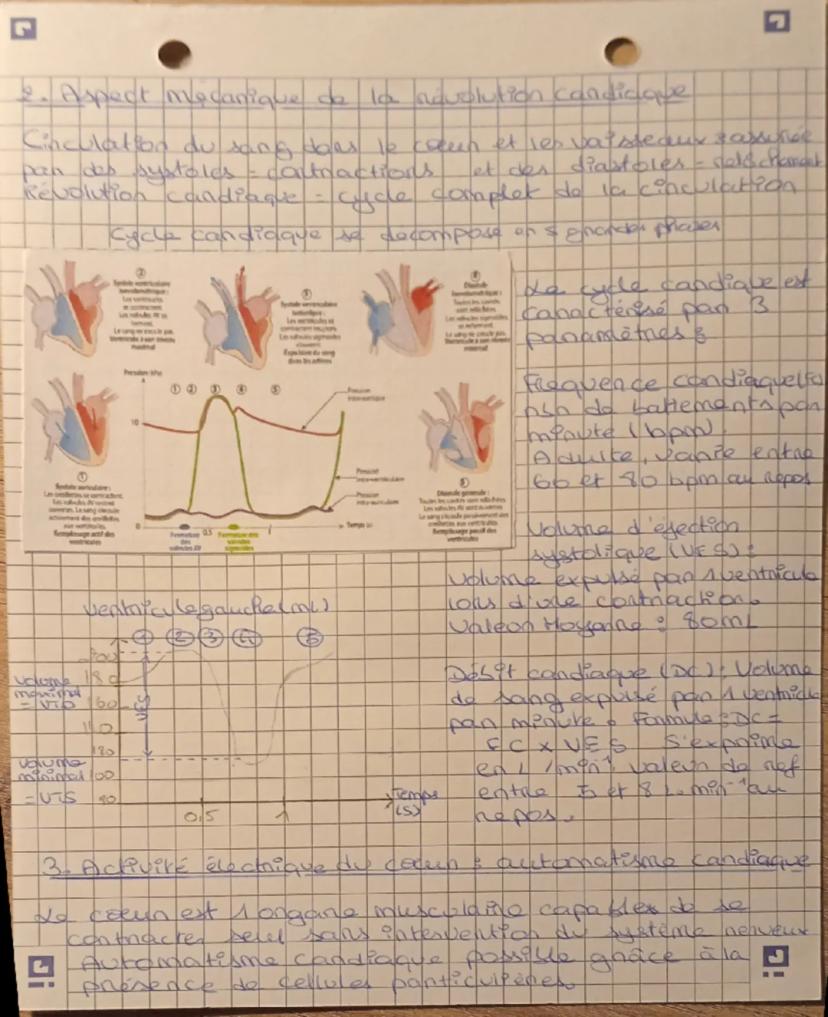 2. Aspect mécanique de la révolution cardiaque
Circulation du sang dans le cœur et les vaisseaux assurée
par des systoles = contractions et des diastoles = relâchement
Révolution cardiaque = cycle complet de la circulation
Cycle cardiaque se décompose en 5 grandes phases
②
Systole ventriculaire
isovolumétrique :
Les ventricules
se contractent.
Les valvules AV se
ferment.
Le sang ne circule pas.
Ventricule à son niveau
maximal
③
Systole ventriculaire
Les ventricules se
contractent toujours.
Les valvules sigmoïdes
s'ouvrent.
Expulsion du sang
dans les artères
④
Diastole
isovolumétrique :
Toutes les cavités
sont relâchées.
Les valvules sigmoïdes
se referment.
Le sang ne circule pas.
Ventricule à son niveau
minimal
Pression (kPa)
① ② ③ ④ ⑤
10
0
0,5
1
Temps (s)
Pression
intra-aortique
Pression
intraventriculaire
Pression
intra-auriculaire
Fermeture
des
valvules AV
Fermeture des
valvules
sigmoïdes
①
Systole auriculaire :
Les oreillettes se contractent.
Les valvules AV restent
ouvertes. Le sang circule
activement des oreillettes
aux ventricules.
Remplissage actif des
ventricules
⑤
Diastole générale :
Toutes les cavités sont relâchées
Les valvules AV sont ouvertes
Le sang circule passivement des
oreillettes aux ventricules.
Remplissage passif des
ventricules
Le cycle cardiaque est
caractérisé par 3
paramètres :
Fréquence cardiaque (FC)
nbr de battements par
minute (bpm).
Adulte, varie entre
60 et 80 bpm au repos
Volume d'éjection
systolique (VES) :
Volume expulsé par 1 ventricule
lors d'une contraction.
Valeur Moyenne : 80mL
Débit cardiaque (DC) : Volume
de sang expulsé par 1 ventricule
par minute. Formule : DC =
FC x VES S'exprime
en L/min⁻¹ valeur de ref
entre 5 et 8 L.min⁻¹ au
repos.
Ventricule gauche (mL)
① ② ③ ④ ⑤
200
180
160
140
120
100
80
volume
maximal
= VTD
VES
volume
minimal
= VTS
0,5
1
Temps
(s)
3. Activité électrique du cœur : automatisme cardiaque
Le cœur est 1 organe musculaire capables de se
contracter seul sans intervention du système nerveux
Automatisme cardiaque possible grâce à la
présence de cellules particulières.